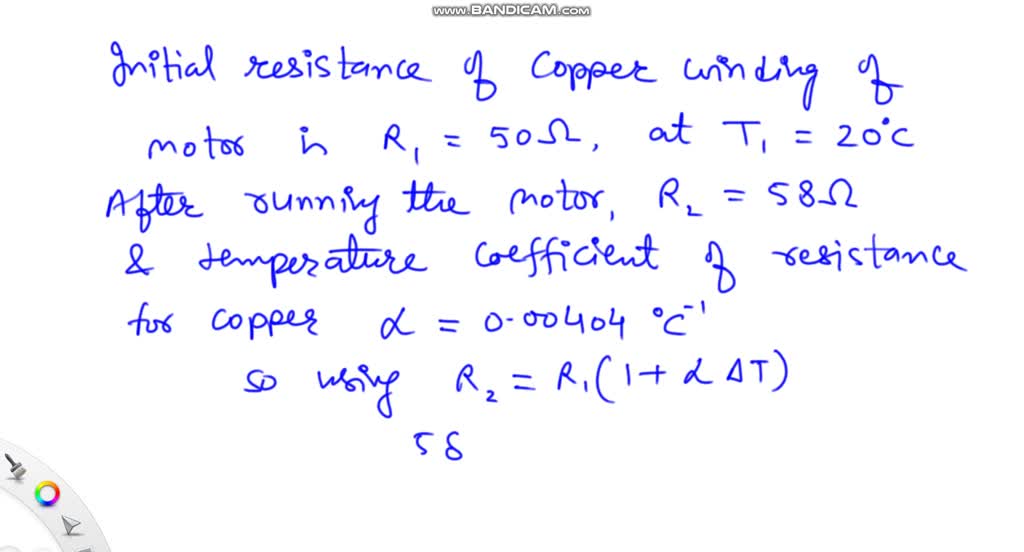 www.BANDICAM.com
Initial resistance of Copper winding of
motor is R₁ = 50Ω, at T₁ = 20°C
After running the motor, R₂ = 58Ω
& temperature coefficient of resistance
for copper α = 0.00404 °C⁻¹
so using R₂ = R₁(1+ α ΔT)
58